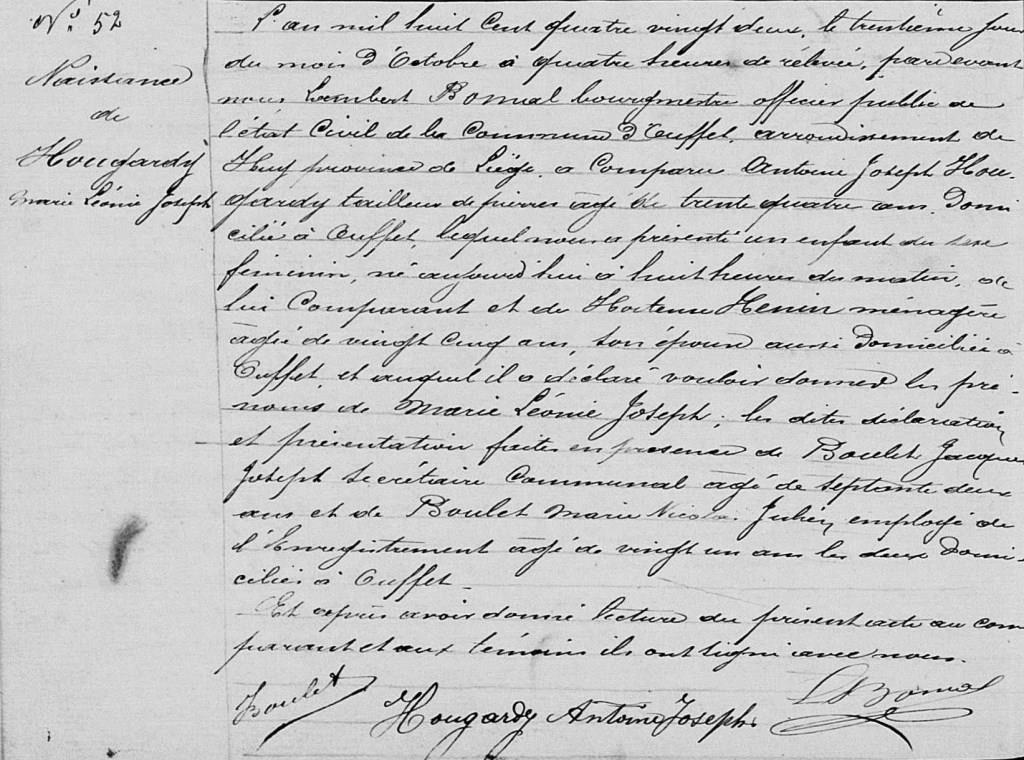 N° 52
Naissance
de
Hougardy
Marie Léonie Joseph
L'an mil huit cent quatre vingt deux, le trentième jour
du mois d'Octobre à quatre heures de relevée, pardevant
nous Lambert Bonmal bourgmestre officier public de
l'état Civil de la Commune d'Ouffet, arrondissement de
Huy province de Liége, a Comparu Antoine Joseph Hou-
gardy tailleur de pierres âgé de trente quatre ans, Domi
cilié à Ouffet, lequel nous a présenté un enfant du sexe
féminin, né aujourd'hui à huit heures du matin, de
lui Comparant et de Hortense Henin ménagère
âgée de vingt cinq ans, son épouse aussi Domiciliée à
Ouffet, et auquel il a déclaré vouloir donner les pré-
noms de Marie Léonie Joseph; les dites déclaration
et présentation faites en présence de Boulet Jacques
Joseph Secrétaire Communal âgé de septante deux
ans et de Boulet Marie Nicolas Julien, employé de
l'Enregistrement âgé de vingt un ans les deux Domi-
ciliés à Ouffet.
Et après avoir donné lecture du présent acte au com
parant et aux témoins ils ont signé avec nous.
Boulet
Hougardy Antoine Joseph